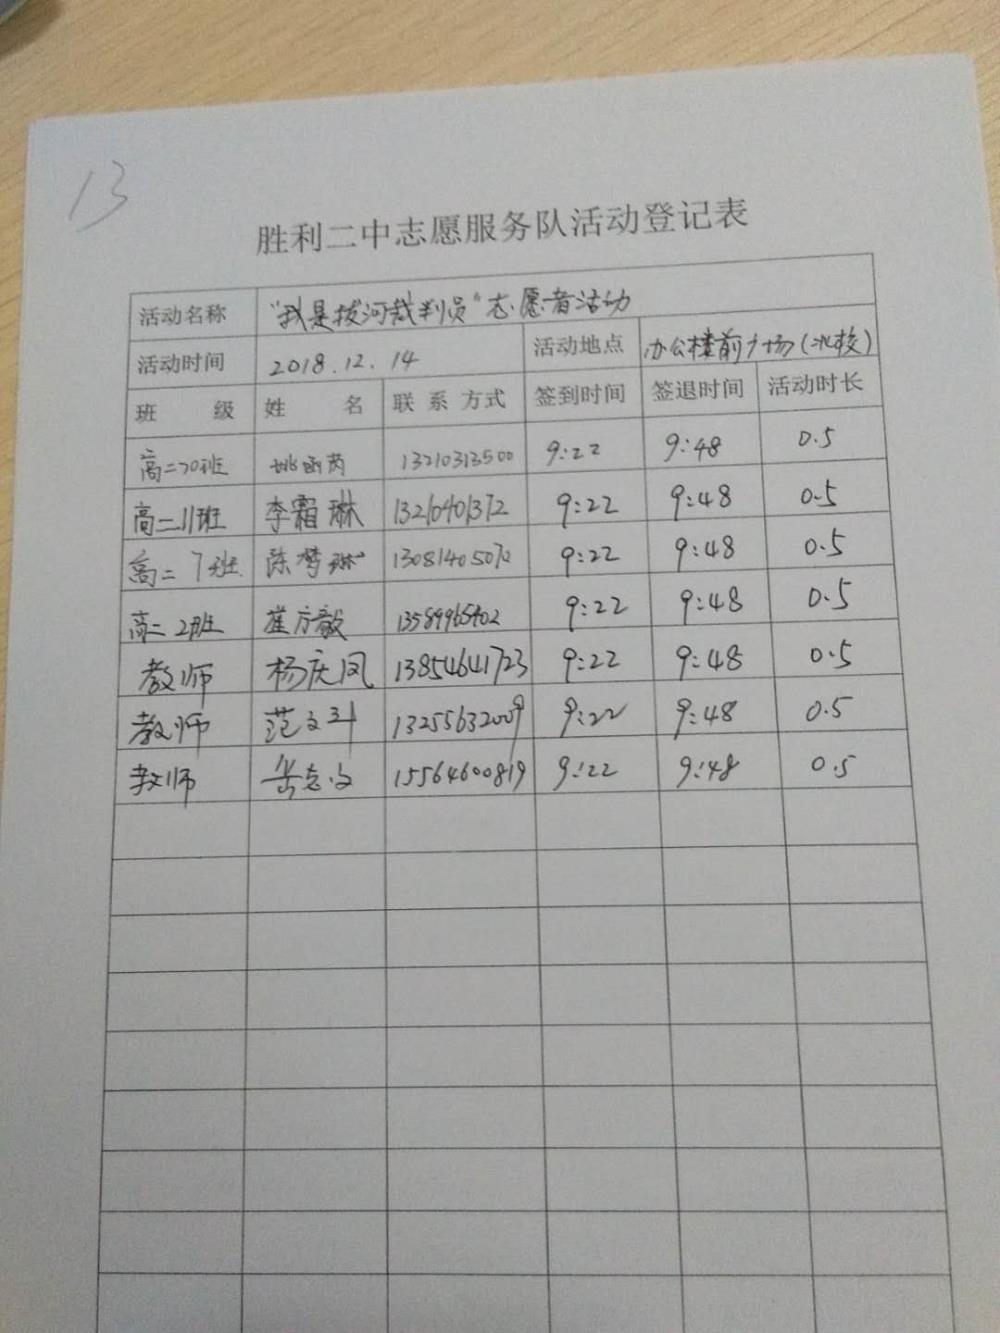 13
胜利二中志愿服务队活动登记表
活动名称 "我是拔河裁判员"志愿者活动
活动时间 2018.12.14 活动地点 办公楼前广场(北校)
班级 姓名 联系方式 签到时间 签退时间 活动时长
高二20班 姚函芮 13210313500 9:22 9:48 0.5
高二11班 李霜琳 13216401372 9:22 9:48 0.5
高二7班 陈梦琳 9:22 9:48 0.5
高二2班 崔方毅 13589965402 9:22 9:48 0.5
教师 杨庆凤 13854641723 9:22 9:48 0.5
教师 范文科 13255632009 9:22 9:48 0.5
教师 岳志文 15564600819 9:22 9:48 0.5